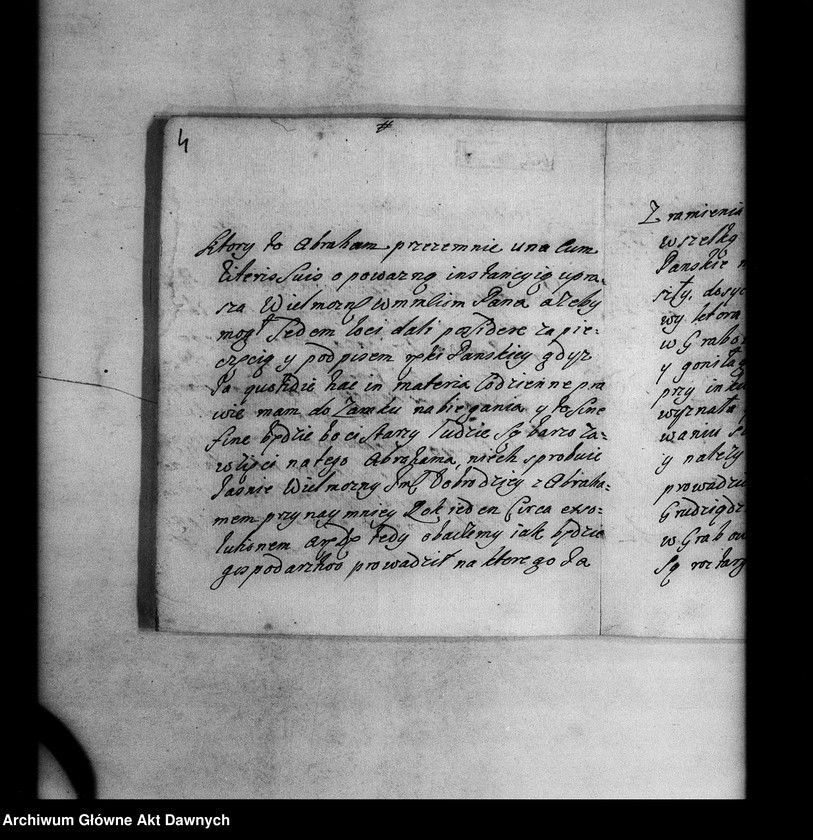 4
#
Ktory to Abraham przezemnie una Cum
Literis Suis o powazną instancyią upra-
sza Wielmozn WmMm Pana azeby
mogł Sedem loci dali posidere za pie-
częcią y podpisem ręki Panskiey gdyz
Ja quotidie hac in materia Codzienne pra
wie mam do Zamku nabiegania y to sine
fine będzie bo ci starzy ludzie są barzo za-
wzięci na tego Abrahama, niech sprobuie
Jasnie Wielmozny Dobrodziey z Abraha-
mem przynaymniey Rok ieden Circa exso-
lutionem tedy obaczemy iak będzie
gospodarztwo prowadził na ktorego Ja
Z ramienia
wszelką
Panskie
szły, dosyc
wy ktora
w Grabo
y goniła
przy
wyznała
waniu
y nalezy
prowadzi
Grudziądz
w Grabow
Są
Archiwum Główne Akt Dawnych